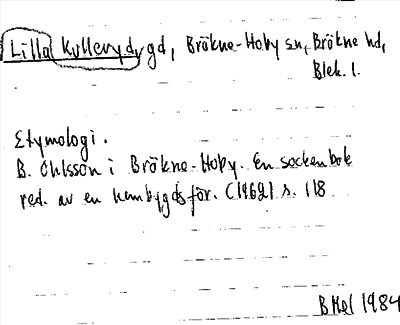 Lilla Kulleryd, gd, Bräkne-Hoby sn, Bräkne hd,
Blek. l.
Etymologi.
B. Ohlsson i Bräkne-Hoby. En sockenbok
red. av en hembygdsför. (1962) s. 118
BHel 1984